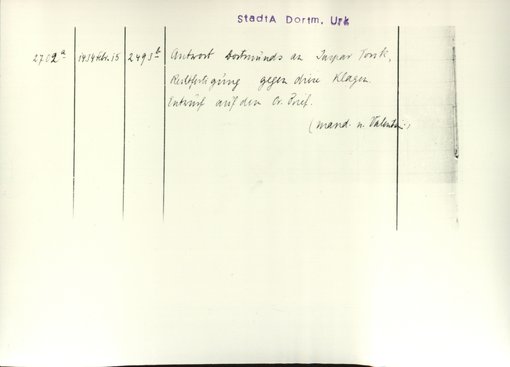 StadtA Dortm. Urk
2702ª 1434 Febr. 15 2493ᵇ Antwort Dortmunds an Caspar Torck,
Rechtfertigung gegen dessen Klagen.
Entwurf auf dem Or. Brief.
(mand. n. Valentini)